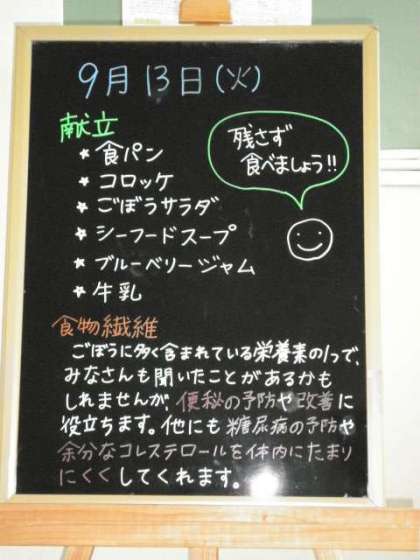 9月13日(火)
献立
★ 食パン
★ コロッケ
★ ごぼうサラダ
★ シーフードスープ
★ ブルーベリージャム
★ 牛乳
残さず
食べましょう!!
食物繊維
ごぼうに多く含まれている栄養素の1つで、
みなさんも聞いたことがあるかも
しれませんが、便秘の予防や改善に
役立ちます。他にも糖尿病の予防や
余分なコレステロールを体内にたまり
にくくしてくれます。